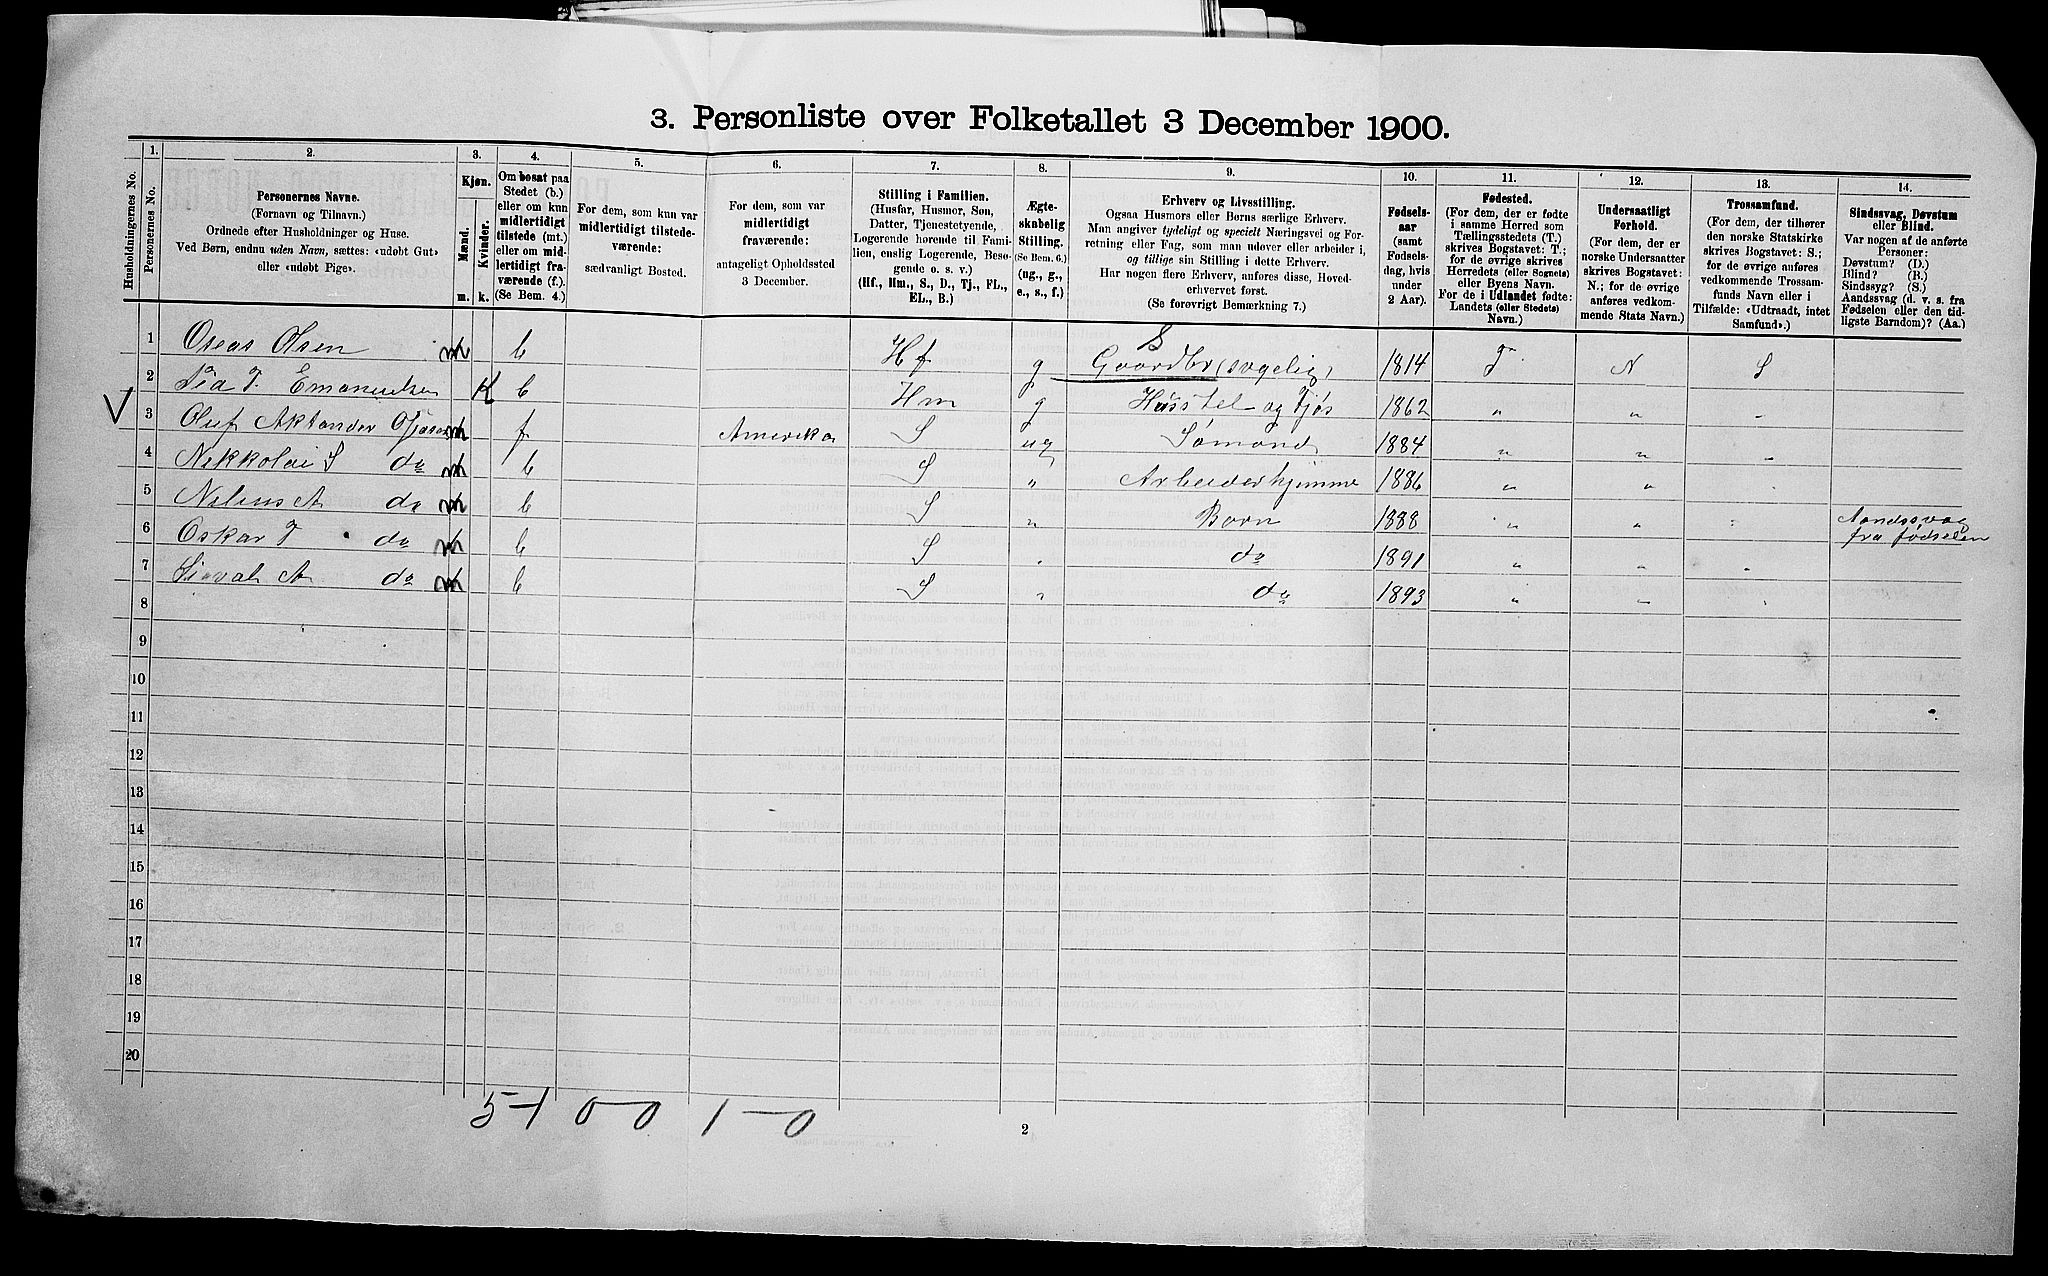 3. Personliste over Folketallet 3 December 1900.
Husholdningernes No.
1.
Personernes No.
2.
Personernes Navne.
(Fornavn og Tilnavn.)
Ordnede efter Husholdninger og Huse.
Ved Børn, endnu uden Navn, sættes: «udøbt Gut»
eller «udøbt Pige».
3.
Kjøn.
Mænd.
Kvinder.
m.
k.
4.
Om bosat paa
Stedet (b.)
eller om kun
midlertidigt
tilstede (mt.)
eller om mid-
lertidigt fra-
værende (f.).
(Se Bem. 4.)
5.
For dem, som kun var
midlertidigt tilstede-
værende:
sædvanligt Bosted.
6.
For dem, som var
midlertidigt
fraværende:
antageligt Opholdssted
3 December.
7.
Stilling i Familien.
(Husfar, Husmor, Søn,
Datter, Tjenestetyende,
Logerende hørende til Fami-
lien, enslig Logerende, Besø-
gende o. s. v.)
(Hf., Hm., S., D., Tj., FL.,
EL., B.)
8.
Ægte-
skabelig
Stilling.
(Se Bem. 6.)
(ug., g.,
e., s., f.)
9.
Erhverv og Livsstilling.
Ogsaa Husmors eller Børns særlige Erhverv.
Man angiver tydeligt og specielt Næringsvei og For-
retning eller Fag, som man udover eller arbeider i,
og tillige sin Stilling i dette Erhverv.
Har nogen flere Erhverv, anføres disse, Hoved-
erhvervet først.
(Se forøvrigt Bemærkning 7.)
10.
Fødsels-
aar
(samt
Fødsels-
dag, hvis
under
2 Aar).
11.
Fødested.
(For dem, der er fødte
i samme Herred som
Tællingsstedets (T.)
skrives Bogstavet: T.;
for de øvrige skrives
Herredets (eller Sognets)
eller Byens Navn.
For de i Udlandet fødte:
Landets (eller Stedets)
Navn.)
12.
Undersaatligt
Forhold.
(For dem, der er
norske Undersaatter
skrives Bogstavet:
N.; for de øvrige
anføres vedkom-
mende Stats Navn.)
13.
Trossamfund.
(For dem, der tilhører
den norske Statskirke
skrives Bogstavet: S.;
for de øvrige anføres
vedkommende Trossam-
funds Navn eller i
Tilfælde: «Udtraadt, intet
Samfund».)
14.
Sindssvag, Døvstum
eller Blind.
Var nogen af de anførte
Personer:
Døvstum? (D.)
Blind? (B.)
Sindssyg? (S.)
Aandssvag (d. v. s. fra
Fødselen eller den tid-
ligste Barndom)? (Aa.)
S
1 Oseas Olsen m b Hf g Gaardbr (svgelig) 1814 T N S
2 Pea T. Emanuelsen K b Hm g Husstel og Fjøs 1862 " " "
3 Oluf Aktander m f Amerika S ug Sømand 1884 " " "
4 Nikkolai S do m b S " Arbeider hjemme 1886 " " "
5 Nilius A do m b S " Barn 1888 " " " Aandssvag
fra fødselen
6 Oskar T do m b S " do 1891 " " "
7 A do m b S " do 1893 " " "
8
9
10
11
12
13
14
15
16
17
18
19
20
5-1 0-0 1-0
2